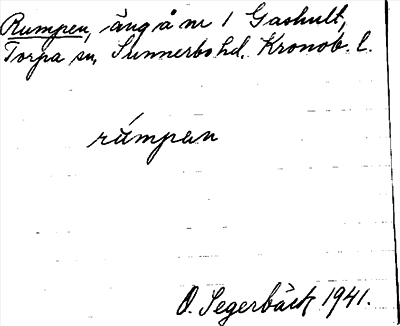 Rumpen, äng å nr 1 Gashult,
Torpa sn, Sunnerbo hd. Kronob. l.
rúmpan
O. Segerbäck 1941.